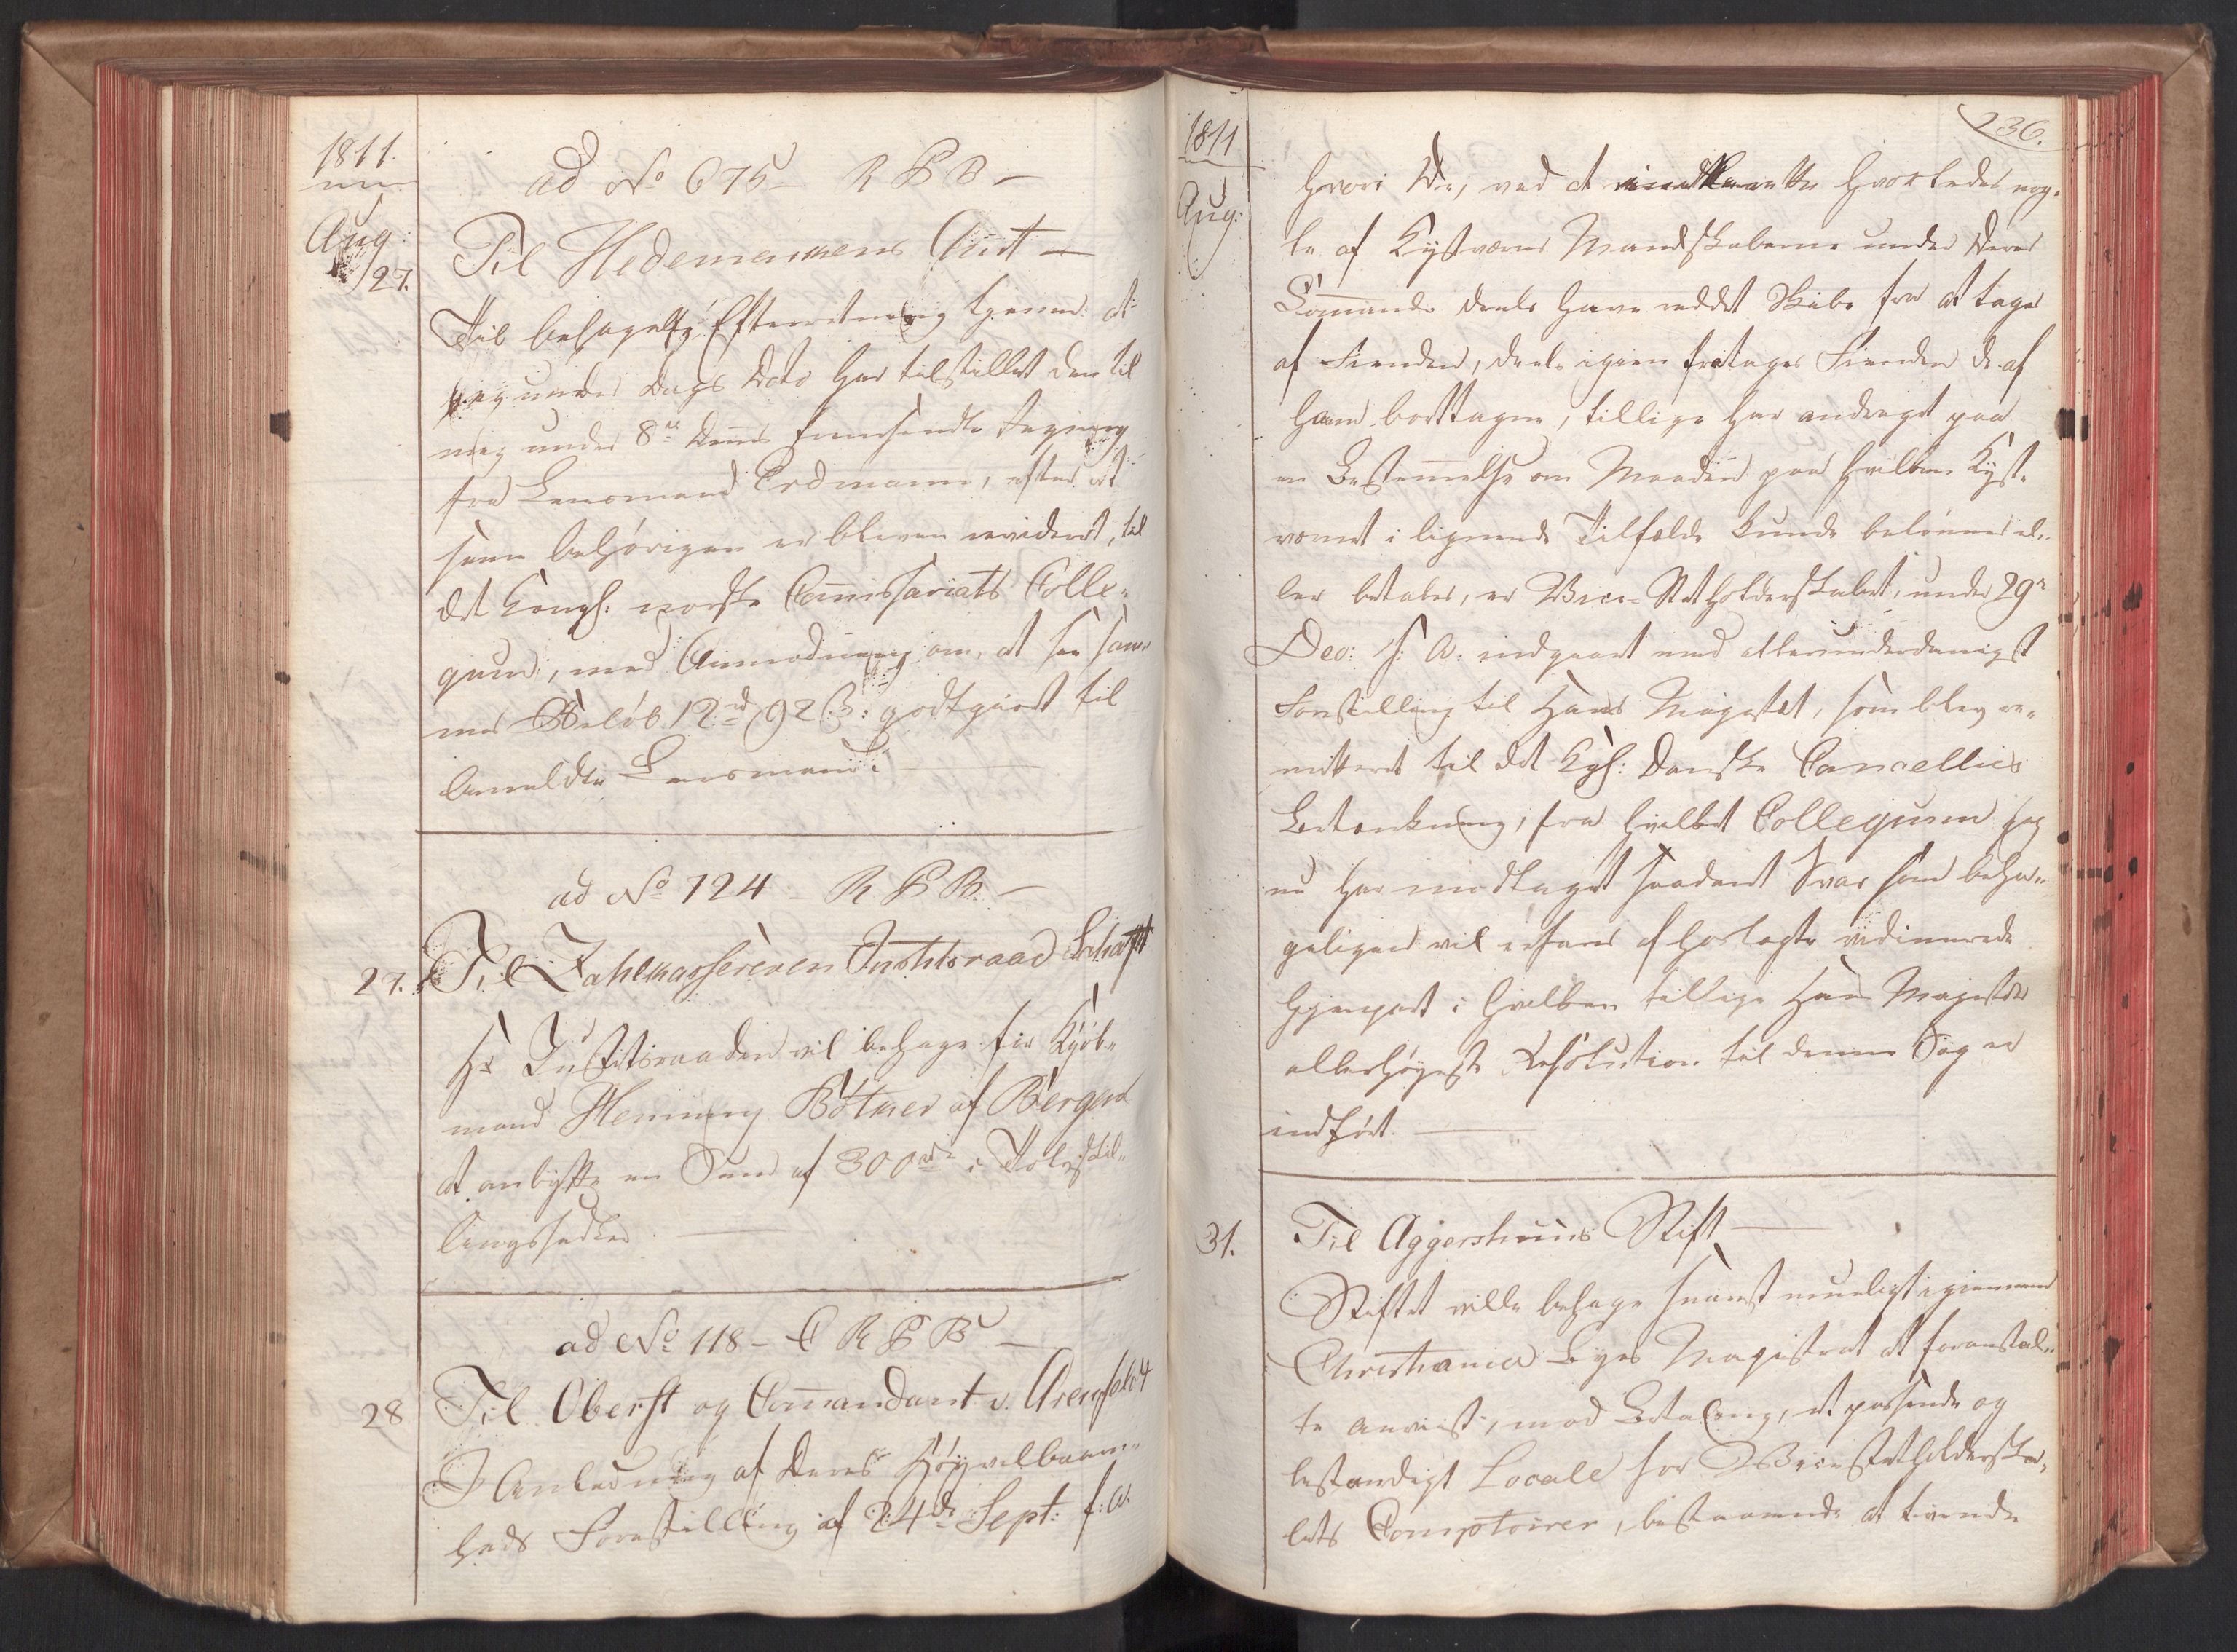 1811.
Aug:
27.
ad No 675 - R P B -
Til Hedemarkens Amt -
Til behagelig Efterretning tjener at
jeg under Dags Dato har tilstillet den til
mig under 8de dennes fremsendte Regning
fra Lensmand Erdmann, efter at
samme behørigen er bleven revideret, til
det Kongl: norske Comissariats Colle-
gium, med Anmodning om, at see sam-
mes Beløb 12 rd 92 s: godtgiort til
bemeldte Lensmand.
ad No 724 - R P B -
27. Til Zahlkassereren Justitsraad Schafft
Hr Justitsraaden vil behage for Kjøb-
mand Henning Bøtner af Bergen
at ombytte en Sum af 300 rd i Tolvskil-
lingssedler.
ad No 118 - C R P B -
28 Til Oberst og Comandant v. Arenfeldt
I Anledning af Deres Høyvelbaaren-
heds Forestilling af 24de Sept: f: A.
1811
Aug:
236.
hvori De, ved at hvorledes nog-
le af Kystværns Mandskaberne under Deres
Comando deels have reddet Skibe fra at tages
af Fienden, deels igien fratages Fienden de af
ham borttagne, tillige har andraget paa
en Bestemmelse om Maaden paa hvilken Kyst-
værnet i lignende Tilfælde kunde belønnes el-
ler betales, er Vice-Statholderskabet under 29de
Dec: f: A: indgaaet med allerunderdanigst
Forestilling til Hans Majestæt, som blev re-
mitteret til det Kgl: Danske Cancellies
Betænkning, fra hvilket Collegium jeg
nu har modtaget saadant Svar som beha-
geligen vil erfares af hoslagte vidimerede
Gjenpart i hvilken tillige Hans Majestæts
allerhøyeste Resolution til denne Sag er
indført.
31. Til Aggershuus Stift
Stiftet ville behage snarest mueligt igiennem
Christiania Byes Magistrat at foranstal-
te anviist, mod Betaling, et passende og
bestandigt Locale for Vice Statholderska-
bets Comptoirer, bestaaende af tvende